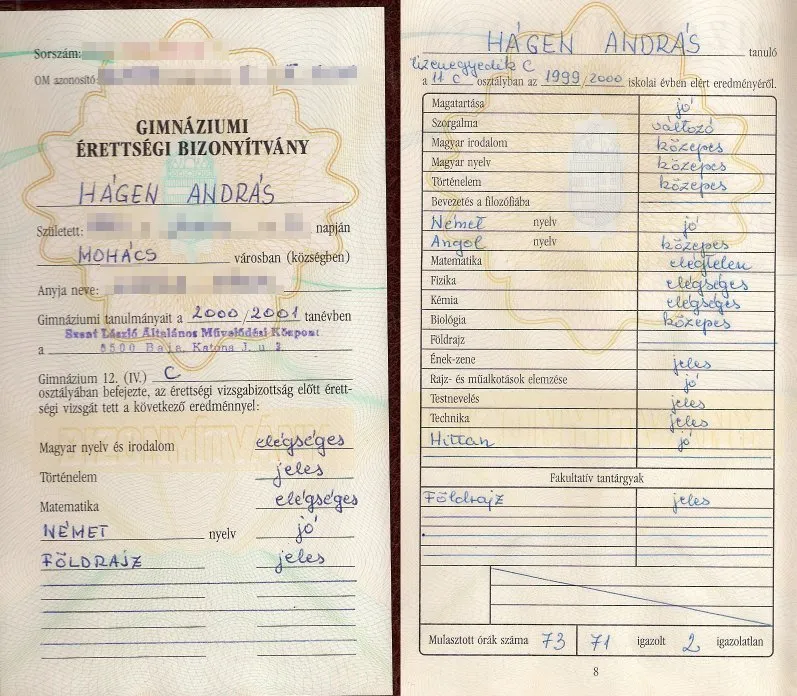 Sorszám:
OM azonosító:
GIMNÁZIUMI
ÉRETTSÉGI BIZONYÍTVÁNY
HÁGEN ANDRÁS
Született: napján
MOHÁCS városban (községben)
Anyja neve:
Gimnáziumi tanulmányait a 2000/2001 tanévben
Szent László Általános Művelődési Központ
a 6500 Baja, Katona J. u 3
Gimnázium 12. (IV.) C
osztályában befejezte, az érettségi vizsgabizottság előtt érett-
ségi vizsgát tett a következő eredménnyel:
Magyar nyelv és irodalom elégséges
Történelem jeles
Matematika elégséges
NÉMET nyelv jó
FÖLDRAJZ jeles
HÁGEN ANDRÁS tanuló
tizenegyedik C
a 11 C osztályban az 1999/2000 iskolai évben elért eredményéről.
Magatartása jó
Szorgalma változó
Magyar irodalom közepes
Magyar nyelv közepes
Történelem közepes
Bevezetés a filozófiába
Német nyelv jó
Angol nyelv közepes
Matematika elégtelen
Fizika elégséges
Kémia elégséges
Biológia közepes
Földrajz
Ének-zene jeles
Rajz- és műalkotások elemzése jó
Testnevelés jeles
Technika jeles
Hittan jó
Fakultatív tantárgyak
Földrajz jeles
Mulasztott órák száma 73 71 igazolt 2 igazolatlan
8